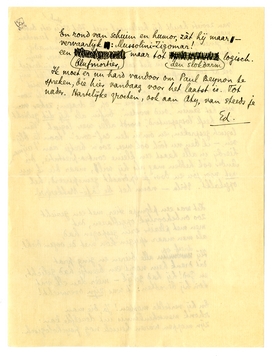 En rond van scheum en humor, zăt hij maar
vervaarlijk : Mussolini-Zigomar!
een maar tot logisch.
(Klufmortier) (den slokdarm)
Ik moet er nu hard vandoor om Paul te
spreken, die hier vandaag voor het laatst is. Tot
nader. Hartelijke groeten, ook aan Ahy, van steeds je
Ed.